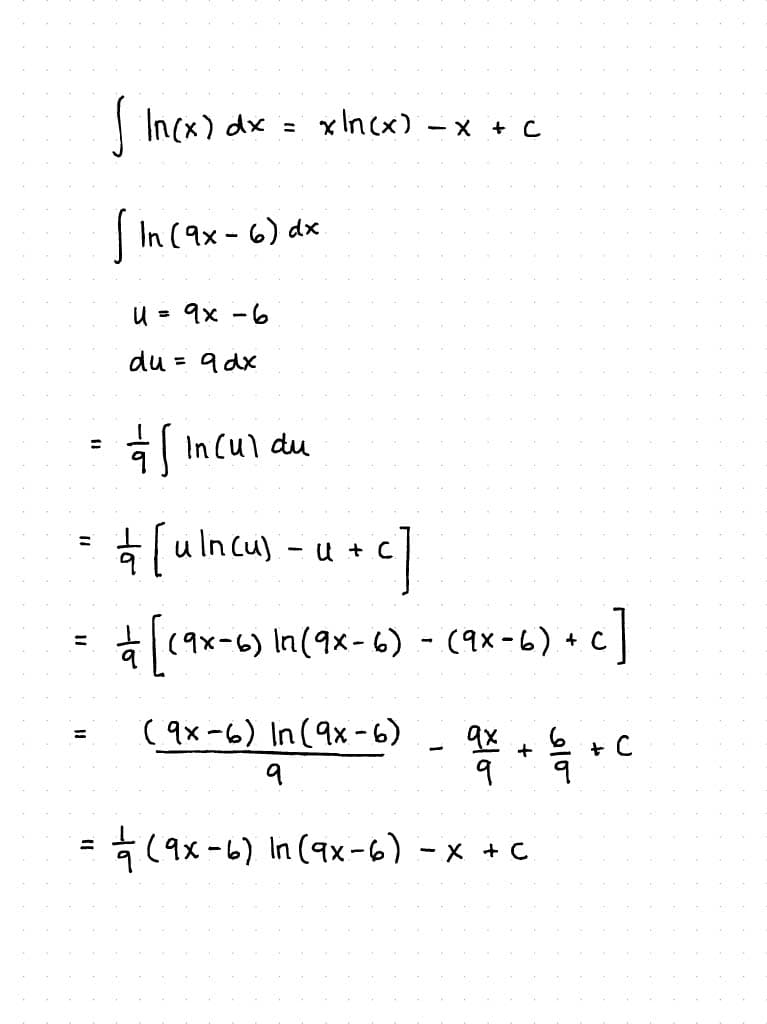 ∫ ln(x) dx = x ln(x) – x + c
∫ ln(9x – 6) dx
u = 9x – 6
du = 9 dx
= 1/9 ∫ ln(u) du
= 1/9 [u ln(u) – u + c]
= 1/9 [(9x–6) ln(9x–6) – (9x–6) + c]
= (9x–6) ln(9x–6)/9 – 9x/9 + 6/9 + C
= 1/9 (9x–6) ln(9x–6) – x + c